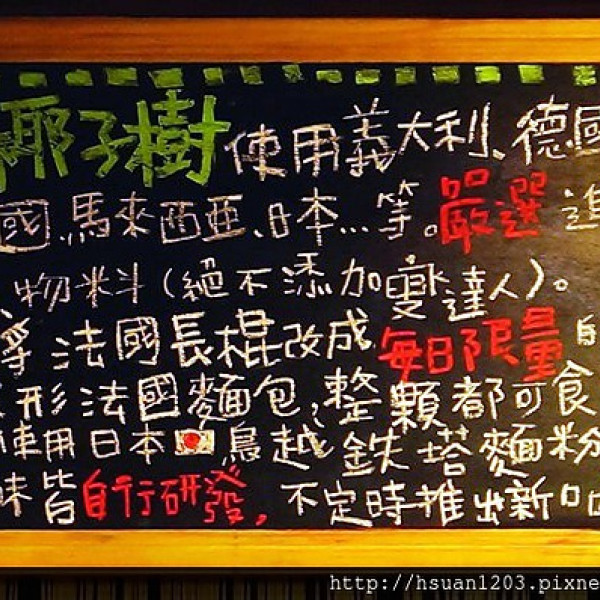 椰子樹 使用義大利、德國
國、馬來西亞、日本...等。嚴選 進
、物料(絕不添加變達人)。
法國長棍改成 每日限量
形法國麵包,整顆都可食
使用日本 鳥越 鉄塔麵粉
味皆自行研發,不定時推出新口
http://hsuan1203.pixne